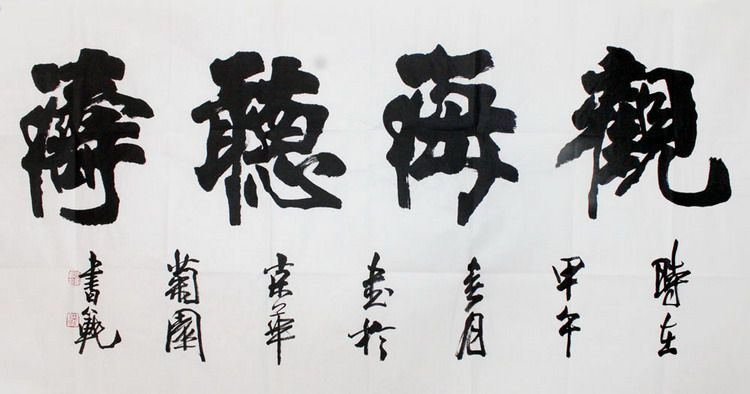 觀海聽濤
時在
甲午
春月
書於
京華
菊園
書範